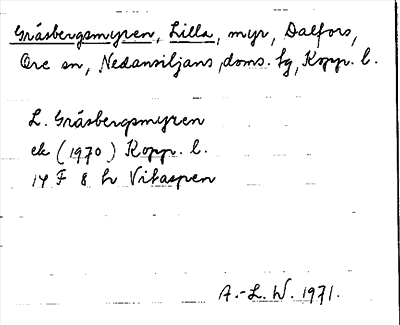 Gråsbergsmyren, Lilla, myr, Dalfors,
Ore sn, Nedansiljans doms. fg, Kopp. l.
L. Gråsbergsmyren
ek (1970) Kopp. l.
14 F 8 h Vitaspen
A.-L. W. 1971.